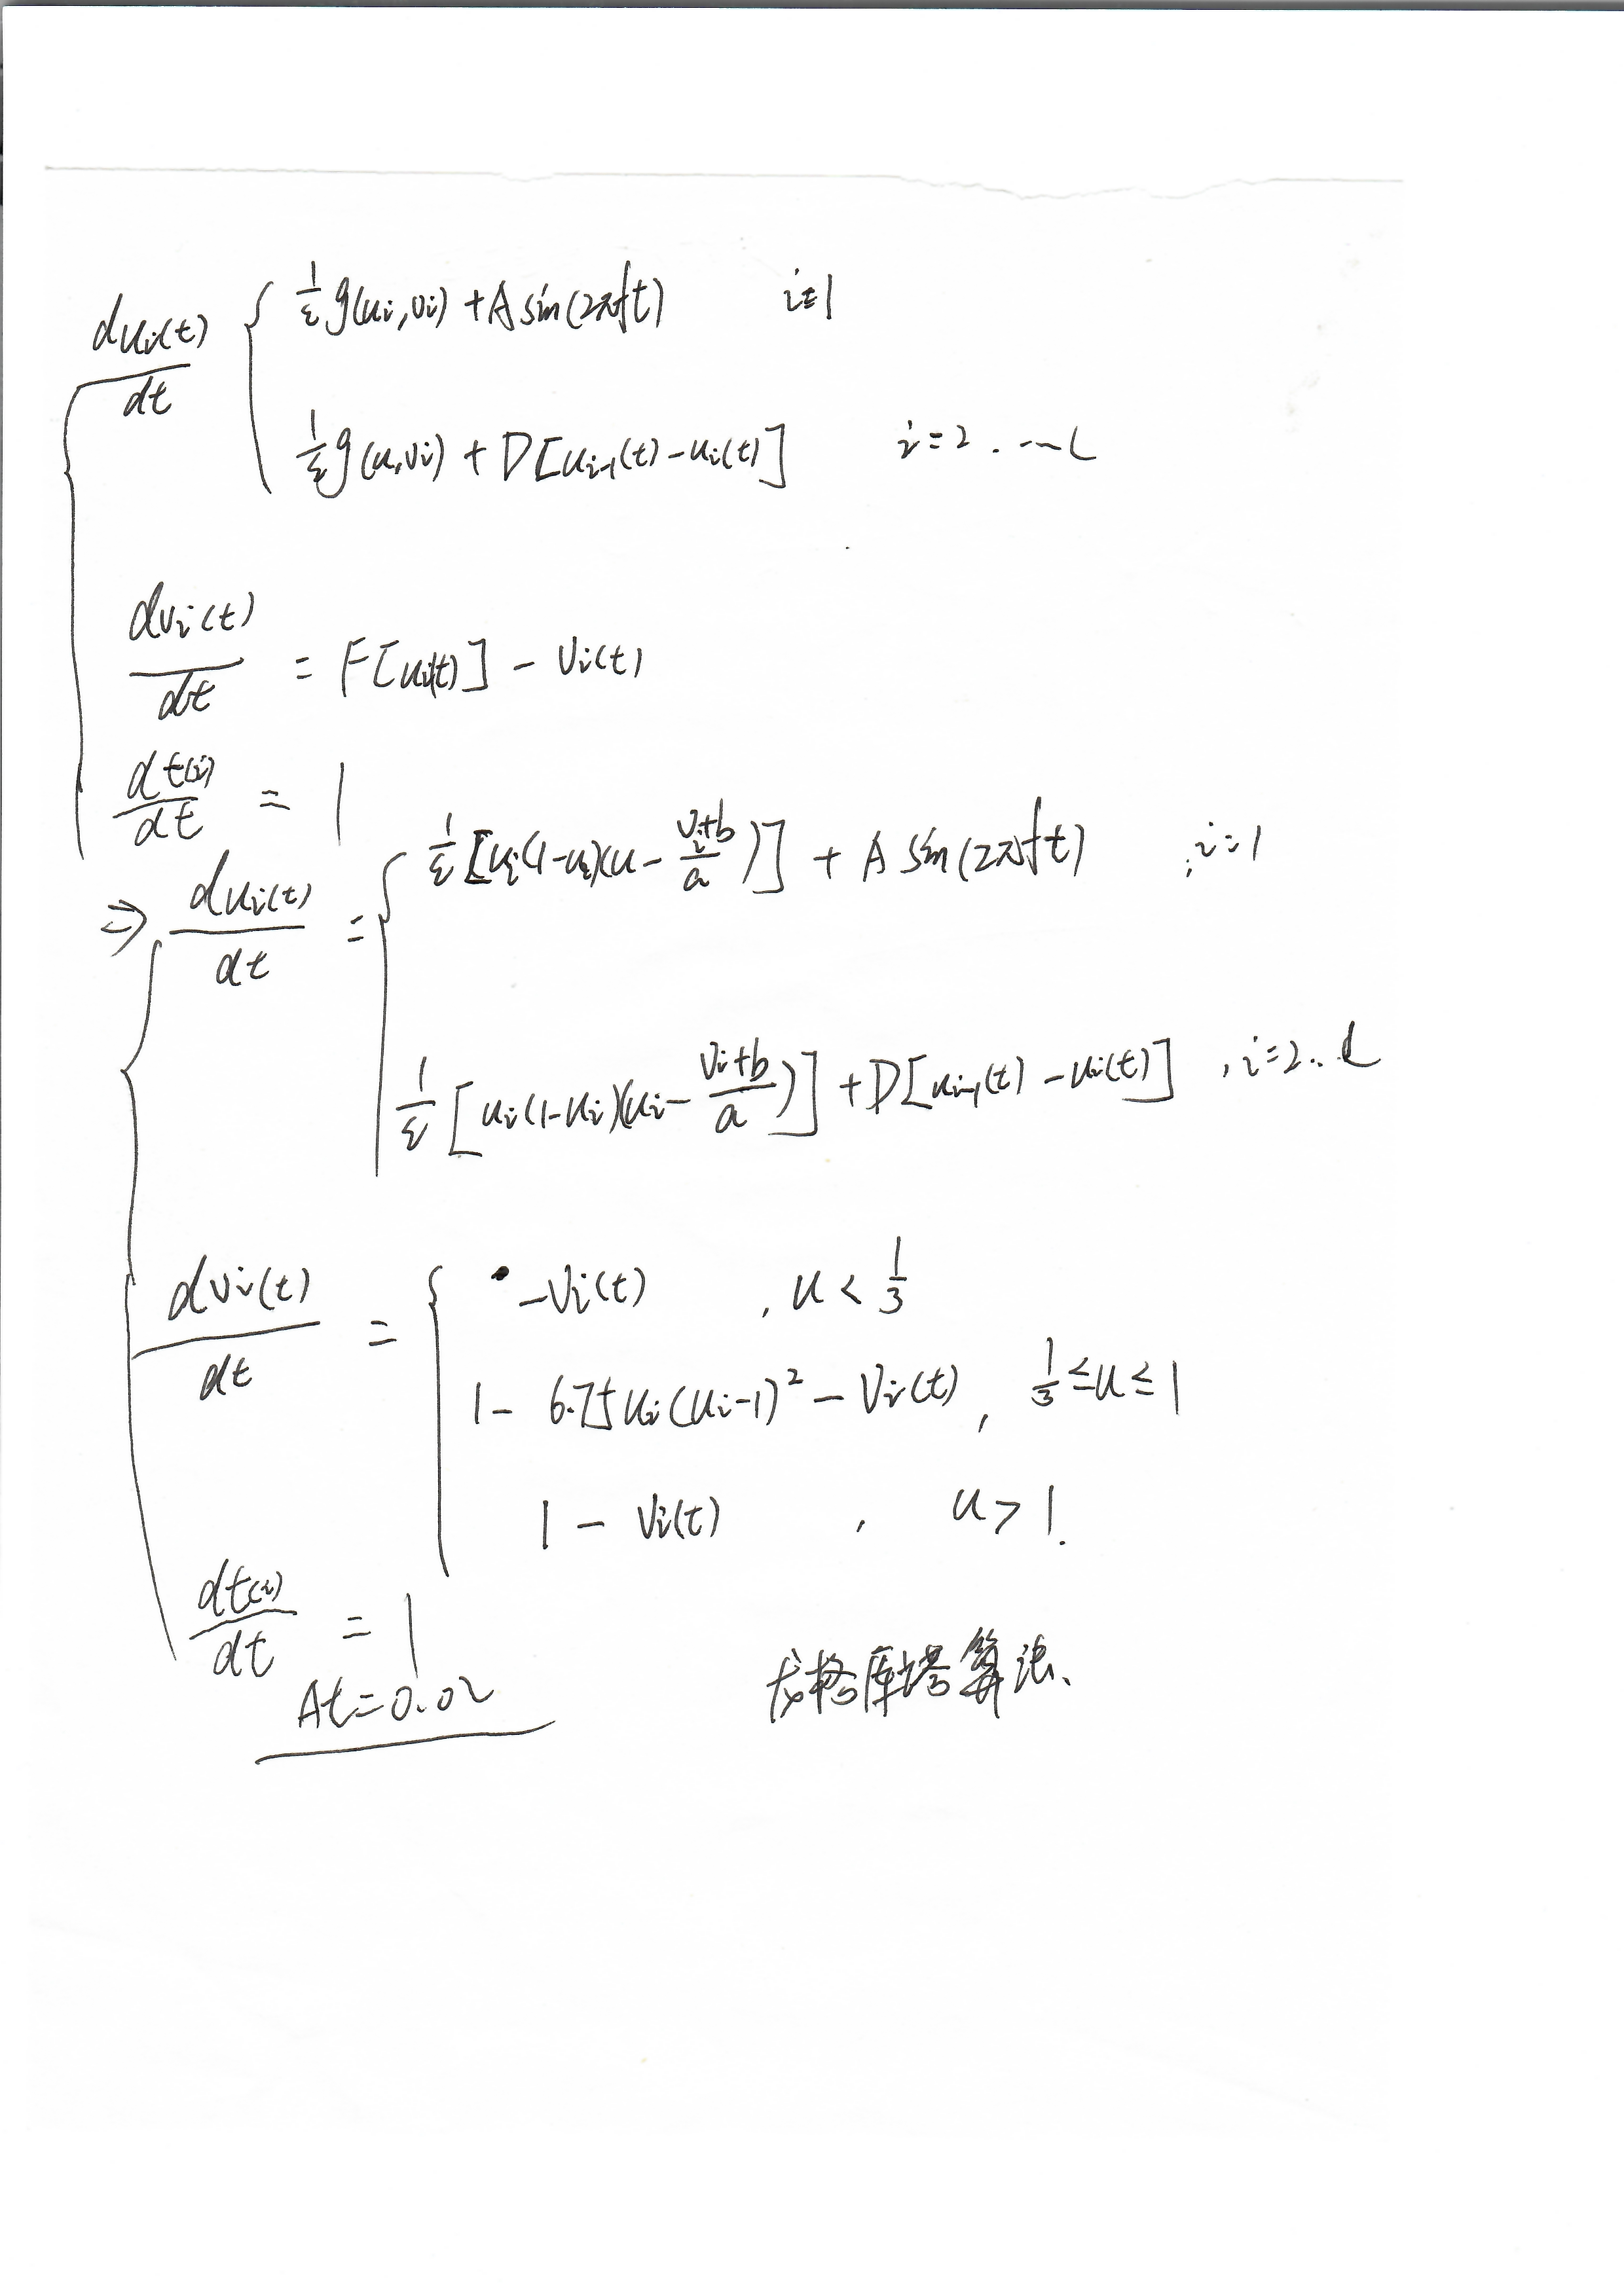 du_i(t)/dt { 1/ε g(u_i, v_i) + A sin(2πft) i=1
1/ε g(u, v_i) + D[u_{i-1}(t) - u_i(t)] i=2. ... L
dv_i(t)/dt = F[u_i(t)] - v_i(t)
dt(i)/dt = 1
⇒ du_i(t)/dt = { 1/ε [u_i(1-u_i)(u - (v_i+b)/a)] + A sin(2πft) , i=1
1/ε [u_i(1-u_i)(u_i - (v_i+b)/a)] + D[u_{i-1}(t) - u_i(t)] , i=2.. L
dv_i(t)/dt = { -v_i(t) , u < 1/3
1 - 6.75 u_i(u_i-1)² - v_i(t) , 1/3 ≤ u ≤ 1
1 - v_i(t) , u > 1.
dt(i)/dt = 1
Δt=0.02
龙格库塔算法、